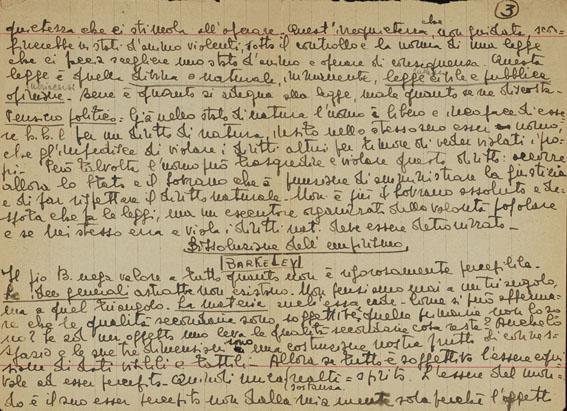 3
quietezza che ci stimola all'operare. Quest'inquietezza, che non guidata, scon-
finerebbe in stati d'animo violenti, sotto il controllo e la norma di una legge
che ci fa scegliere uno stato d'animo e operare di conseguenza. Questa
legge è quella divina o naturale, umanamente, legge civile e pubblica
opinione. Bene è quanto si adegua alla legge, male quanto se ne discosta.
Pensiero politico = Già nello stato di natura l'uomo è libero e
per un diritto di natura, insito nello stesso suo esser uomo,
che gl'impedisce di violare i diritti altrui per timore di veder violati i pro-
pri. Però talvolta l'uomo può trasgredire e violare questo diritto: occorre
allora lo Stato e il Sovrano che à funzione di amministrare la giustizia
e di far rispettare il diritto naturale. Non è più il Sovrano assoluto e de-
spota che fa le leggi, ma un esecutore organizzato della volontà popolare
e se lui stesso erra e viola i diritti nat. deve essere detronizzato.
Dissoluzione dell'empirismo
BARKELEY
Il pio B. nega valore a tutto quanto non è rigorosamente percepibile.
Le idee generali astratte non esistono. Non pensiamo mai a un triangolo,
ma a quel triangolo. La materia anch'essa cade. Come si può afferma-
re che le qualità secondarie sono soggettive, quelle primarie non lo so-
no? Se ad un oggetto uno leva le qualità secondarie cosa resta? Anche lo
spazio e le sue tre dimensioni sono una costruzione nostra frutto di connes-
sione di dati visibili e tattili. Allora se tutto è soggettivo l'essere equi-
vale ad esser percepito. Quindi unica realtà = spirito. L'essere del mon-
sostanza
do è il suo esser percepito non dalla mia mente sola perchè l'oggett